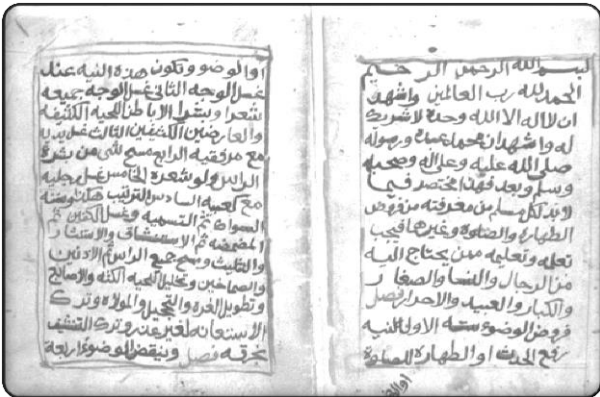 بسم الله الرحمن الرحيم
الحمد لله رب العالمين واشهد
ان لا اله الا الله وحده لا شريك
له واشهد ان محمدا عبده ورسوله
صلى الله عليه وعلى اله وصحبه
وسلم وبعد فهذا مختصر فيما
لابد لكل مسلم من معرفته من فروض
الطهارة والصلوة وغيرهما فيجب
تعلمه وتعليمه من يحتاج اليه
من الرجال والنسا والصغار
والكبار والعبيد والاحرار فصل
فروض الوضوء ستة الاولى النية
رفع الحدث او الطهارة للصلوة
او الوضو
او الوضو وتكون هذه النية عند
غسل الوجه الثاني غسل الوجه جميعه
شعرا وبشرا الا باطن اللحية الكثيفة
والعارضين الكثيفين الثالث غسل يديه
مع مرفقيه الرابع مسح شي من بشرة
الراس ولو شعرة الخامس غسل رجليه
مع كعبيه السادس الترتيب هكذا وسننه
السواك ثم التسمية وغسل الكفين ثم
المضمضة ثم الاستنشاق والاستنثار
والتثليث ومسح جميع الراس ثم الاذنين
والصماخين وتخليل اللحية الكثة والاصابع
وتطويل الغرة والتحجيل والموالاة وترك
الاستعانة لغير عذر وترك التنشيف
بخرقة فصل وينقض الوضوء اربعة